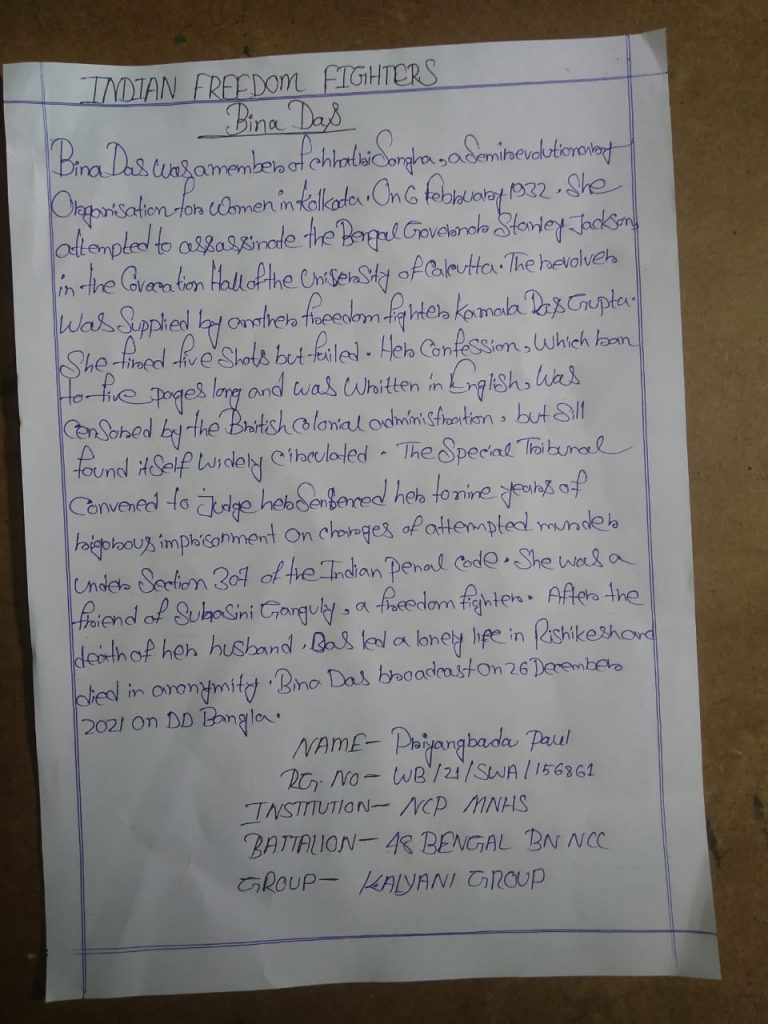 INDIAN FREEDOM FIGHTERS
Bina Das
Bina Das was a member of chhatri Songha, a Semirevolutionary
Organisation for Women in Kolkata. On 6 February 1932. She
attempted to assassinate the Bengal Governor Stanley Jackson,
in the Covocation Hall of the University of Calcutta. The revolver
was Supplied by another freedom fighter Kamala Das Gupta.
She fired five Shots but failed. Her Confession, Which ran
to five pages long and was Written in English, Was
Censored by the British colonial administration, but Sill
found itself widely Circulated. The Special Tribunal
Convened to judge her Sentenced her to nine years of
rigorous imprisonment on charges of attempted murder
under Section 307 of the Indian Penal code. She was a
friend of Subasini Ganguly, a freedom fighter. After the
death of her husband. Das led a lonely life in Rishikesh and
died in anonymity. Bina Das broadcast on 26 December
2021 on DD Bangla.
NAME- Priyangbada Paul
RG. NO- WB/21/SWA/156861
INSTITUTION- NCP MNHS
BATTALION- 48 BENGAL BN NCC
GROUP- KALYANI GROUP